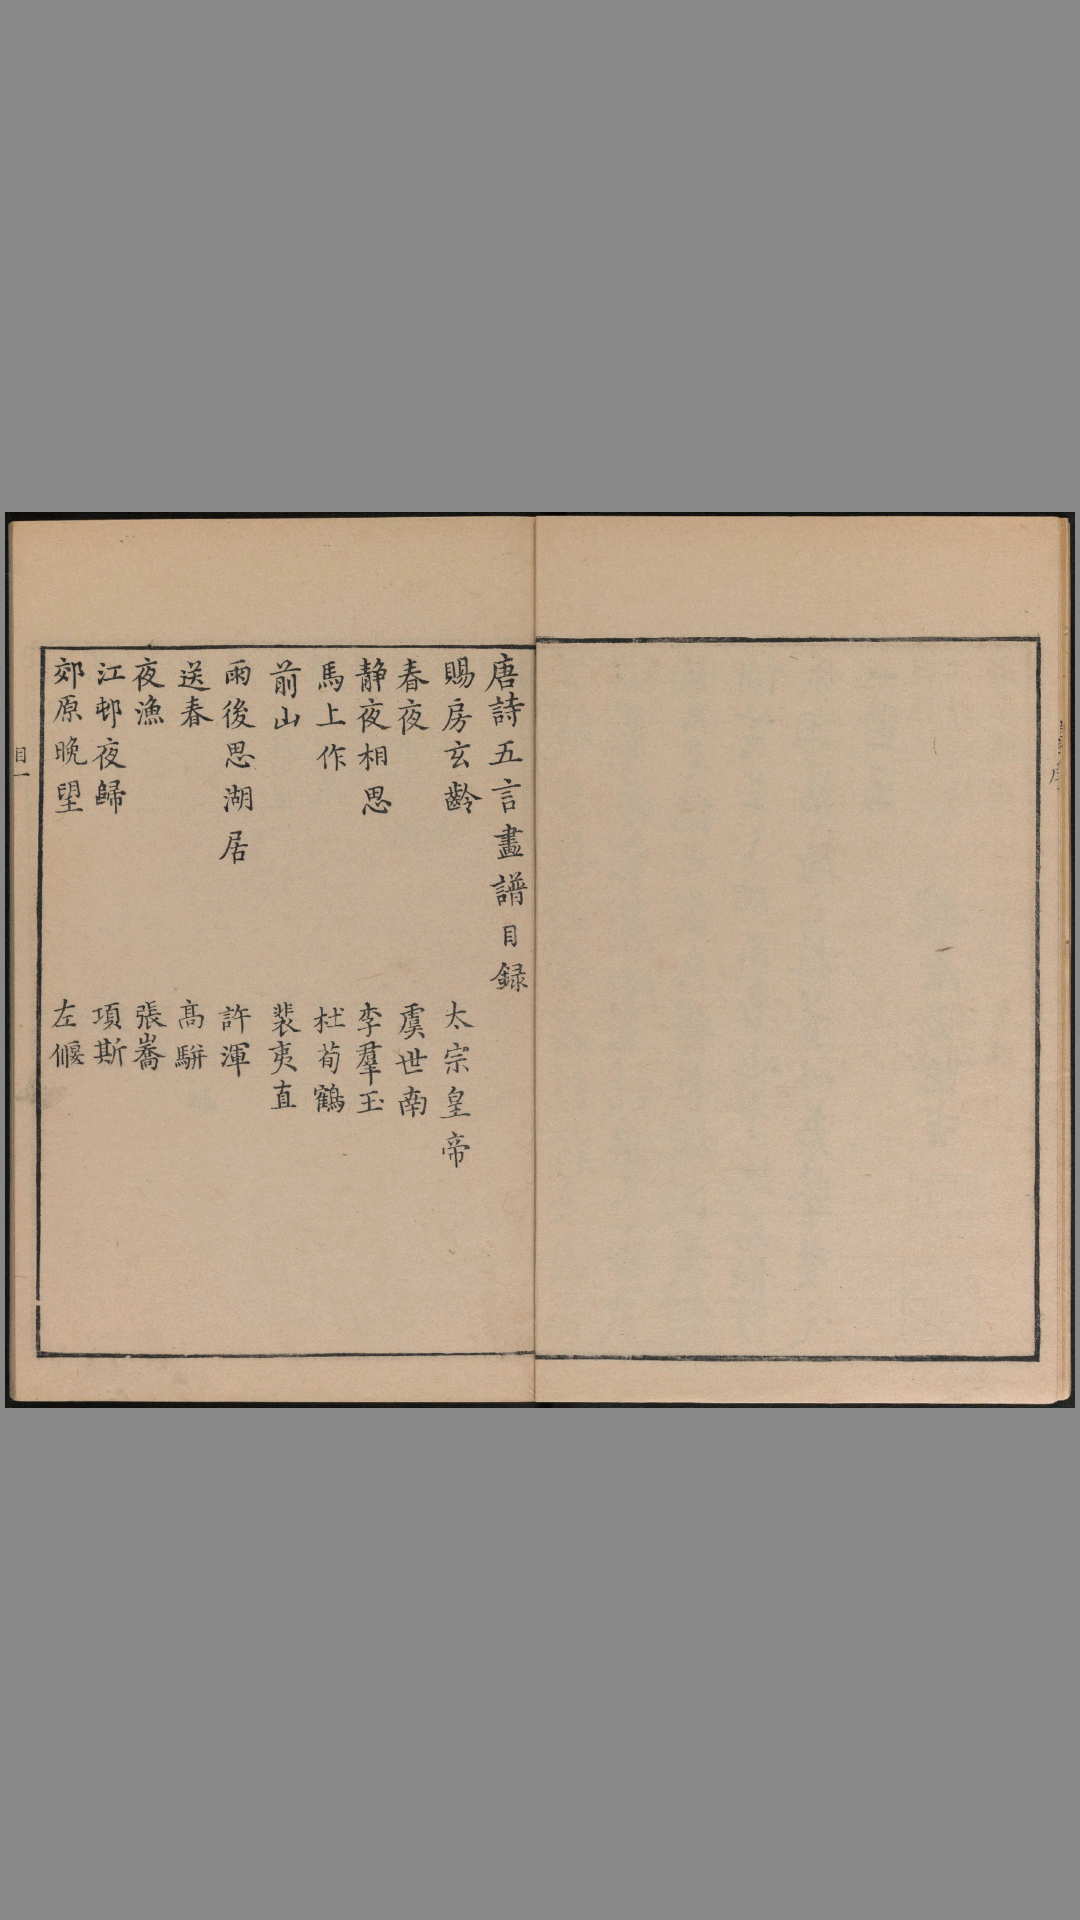 唐詩五言畫譜目録
賜房玄齡 太宗皇帝
春夜 虞世南
靜夜相思 李羣玉
馬上作 杜荀鶴
前山 裴夷直
雨後思湖居 許渾
送春 高駢
夜漁 張喬
江邨夜歸 項斯
郊原晚望 左偃
目一